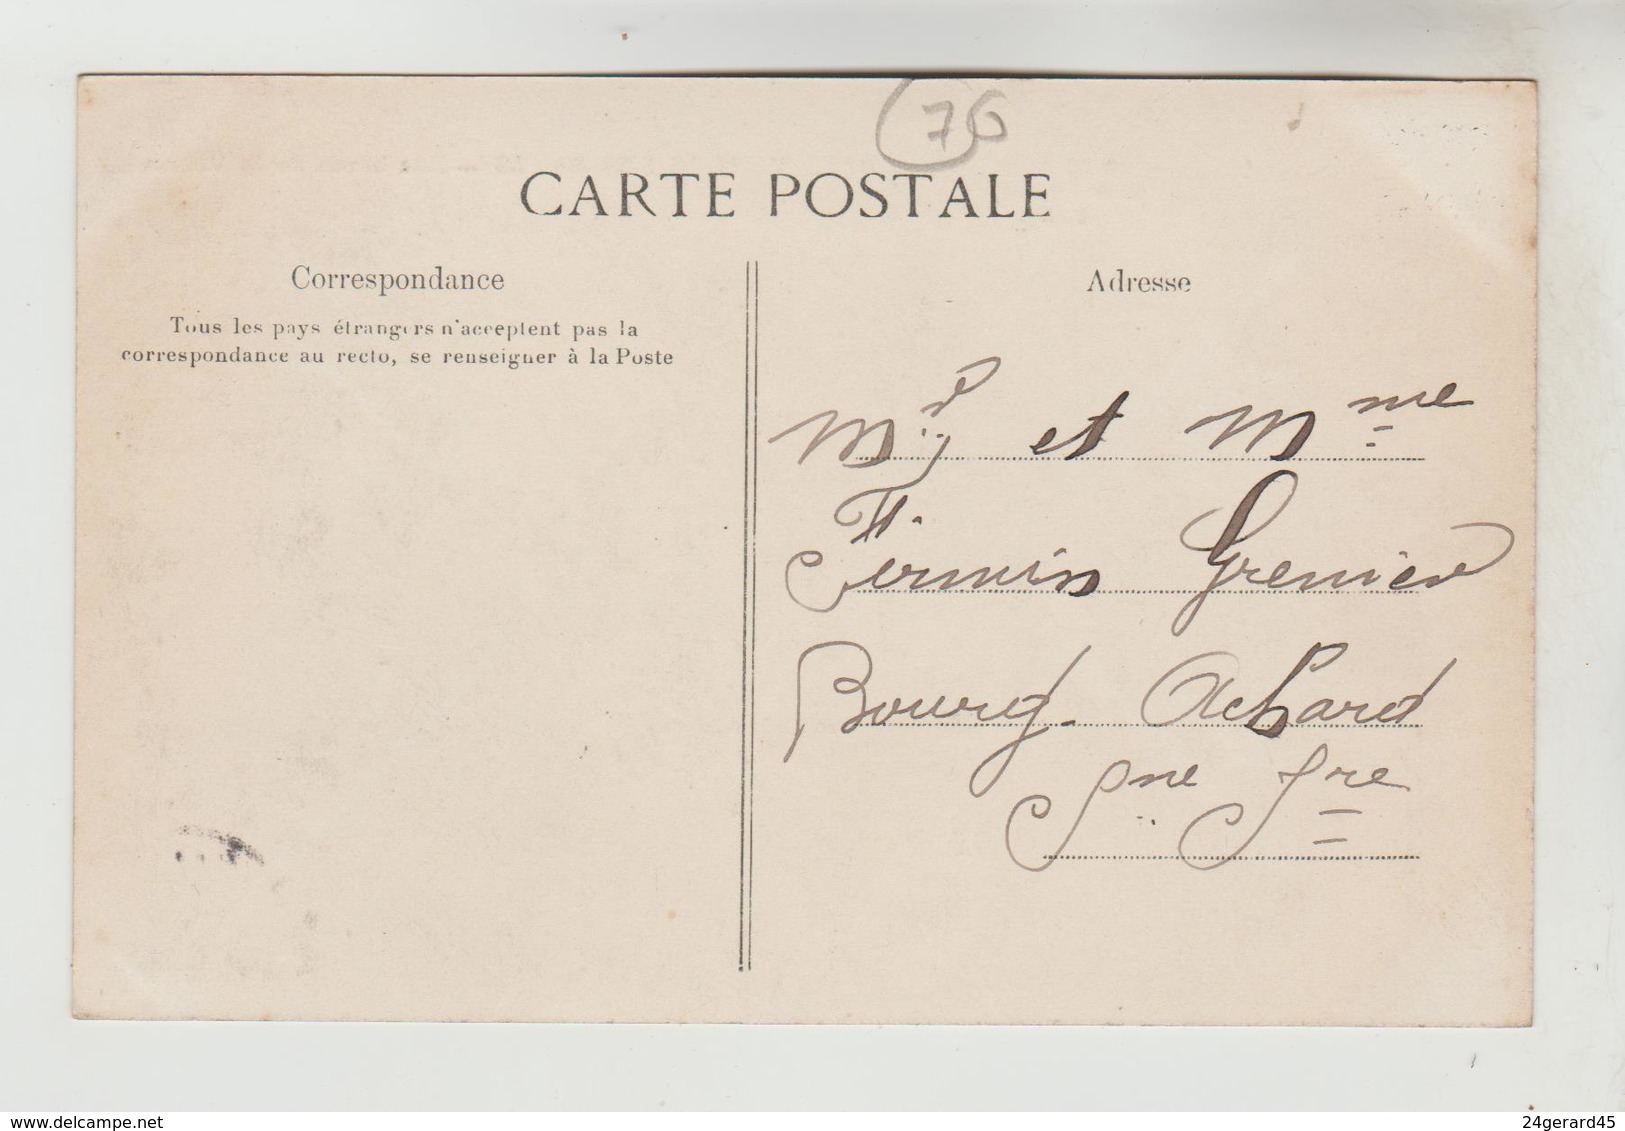 76
CARTE POSTALE
Correspondance
Tous les pays étrangers n'acceptent pas la
correspondance au recto, se renseigner à la Poste
Adresse
Mr et Mme
Firmin Grenier
Bourg-Achard
Sne Fre
delcampe.net
24gerard45